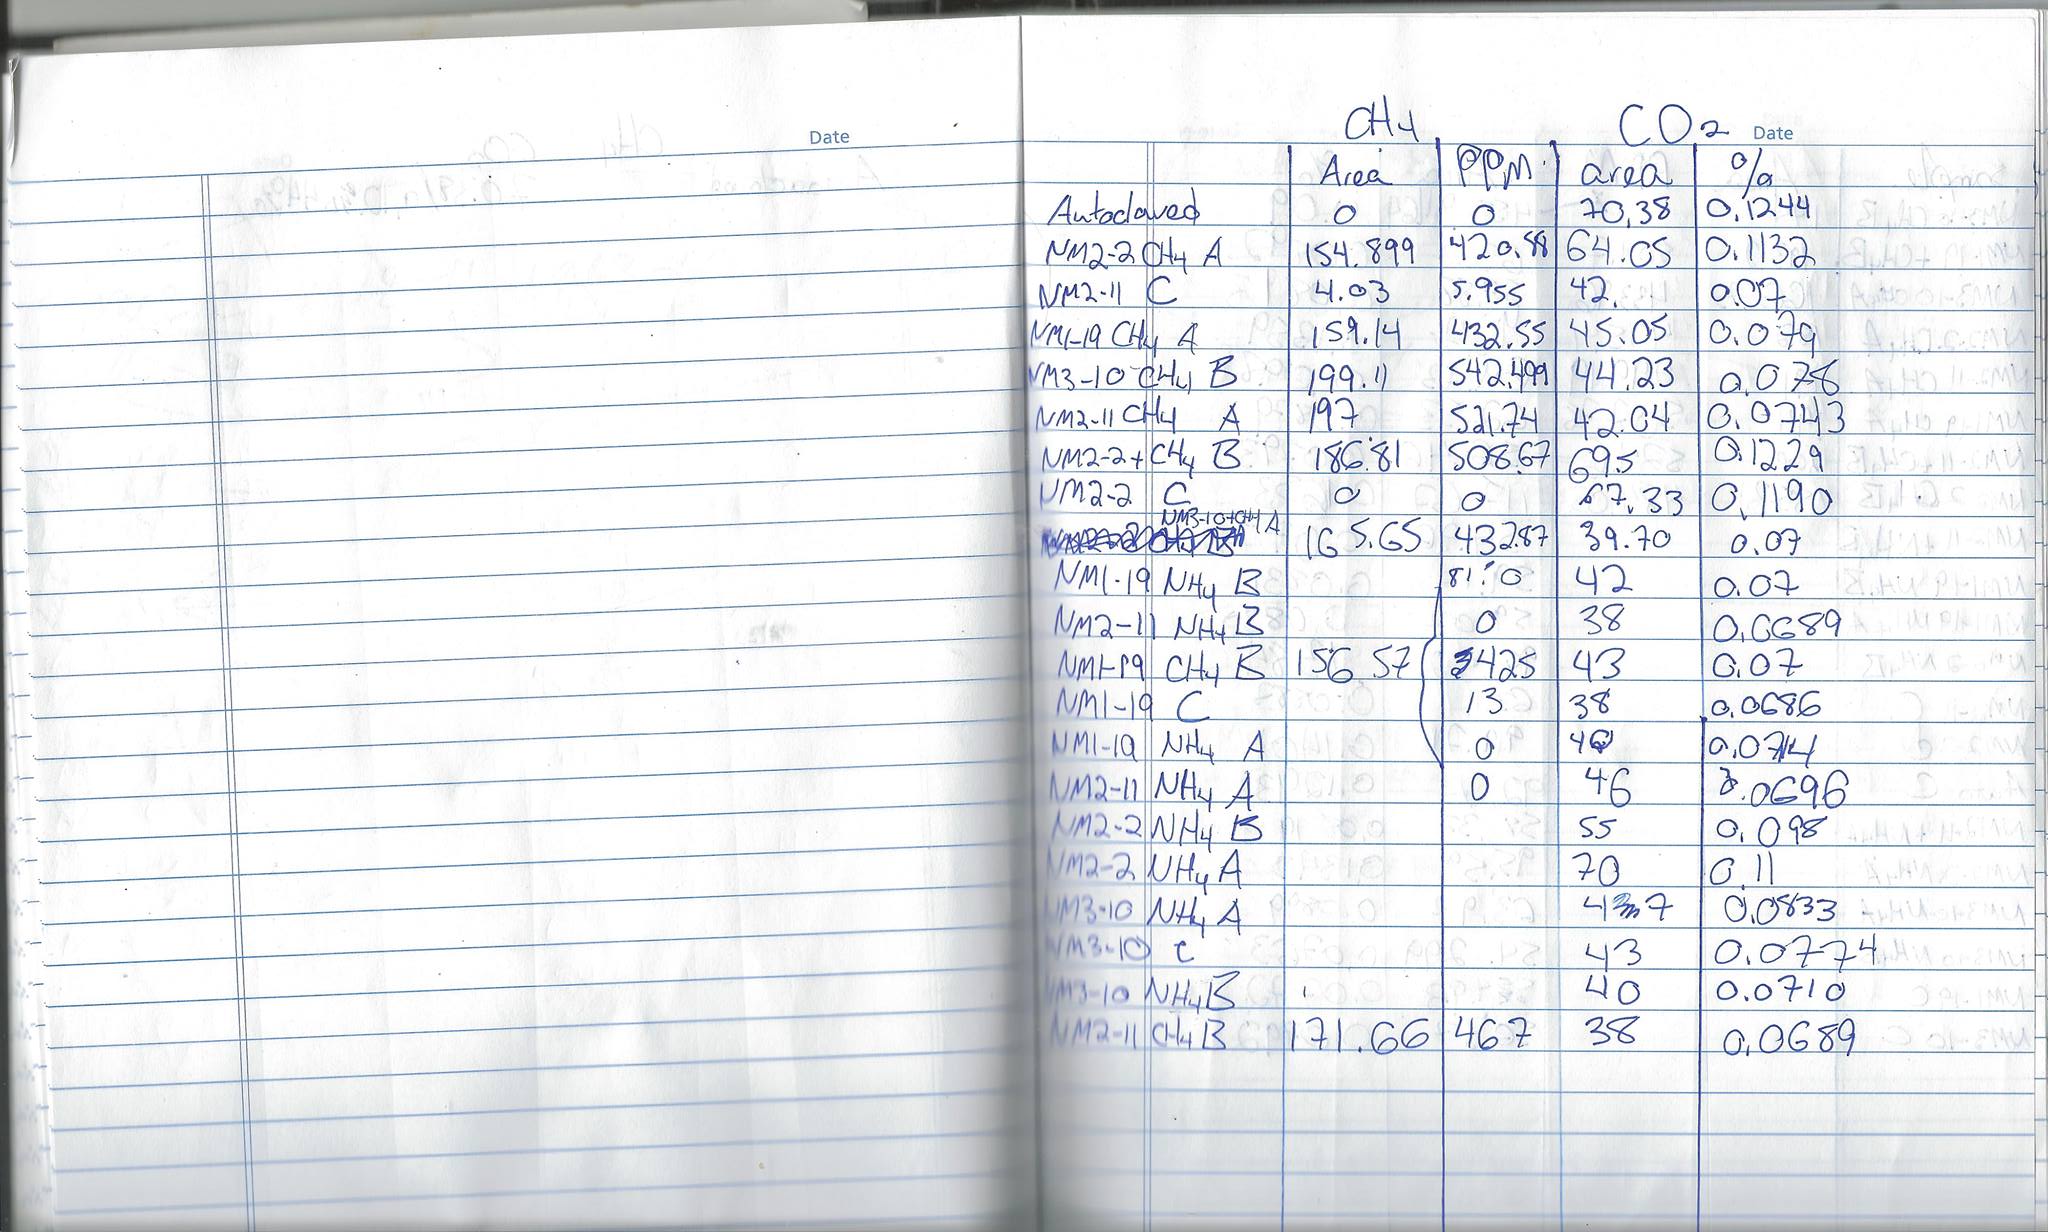 Date
CH4 CO2 Date
Area PPM area %
Autoclaved 0 0 70.38 0.1244
NM2-2 CH4 A 154.899 420.58 64.05 0.1132
NM2-11 C 4.03 5.955 42. 0.07
NM1-19 CH4 A 159.14 432.55 45.05 0.079
NM3-10 CH4 B 199.11 542.499 44.23 0.078
NM2-11 CH4 A 197 521.74 42.04 0.0743
NM2-2+CH4 B 186.81 508.67 69.5 0.1229
NM2-2 C 0 0 67.33 0.1190
NM3-10+CH4 A
165.65 432.87 39.70 0.07
NM1-19 NH4 B 0 42 0.07
NM2-11 NH4 B 0 38 0.0689
NM1-19 CH4 B 156.57 425 43 0.07
NM1-19 C 13 38 0.0686
NM1-19 NH4 A 0 0.0714
NM2-11 NH4 A 0 46 0.0696
NM2-2 NH4 B 55 0.098
NM2-2 NH4 A 70 0.11
NM3-10 NH4 A 0.0833
NM3-10 C 43 0.0774
NM3-10 NH4 B 40 0.0710
NM2-11 CH4 B 171.66 467 38 0.0689